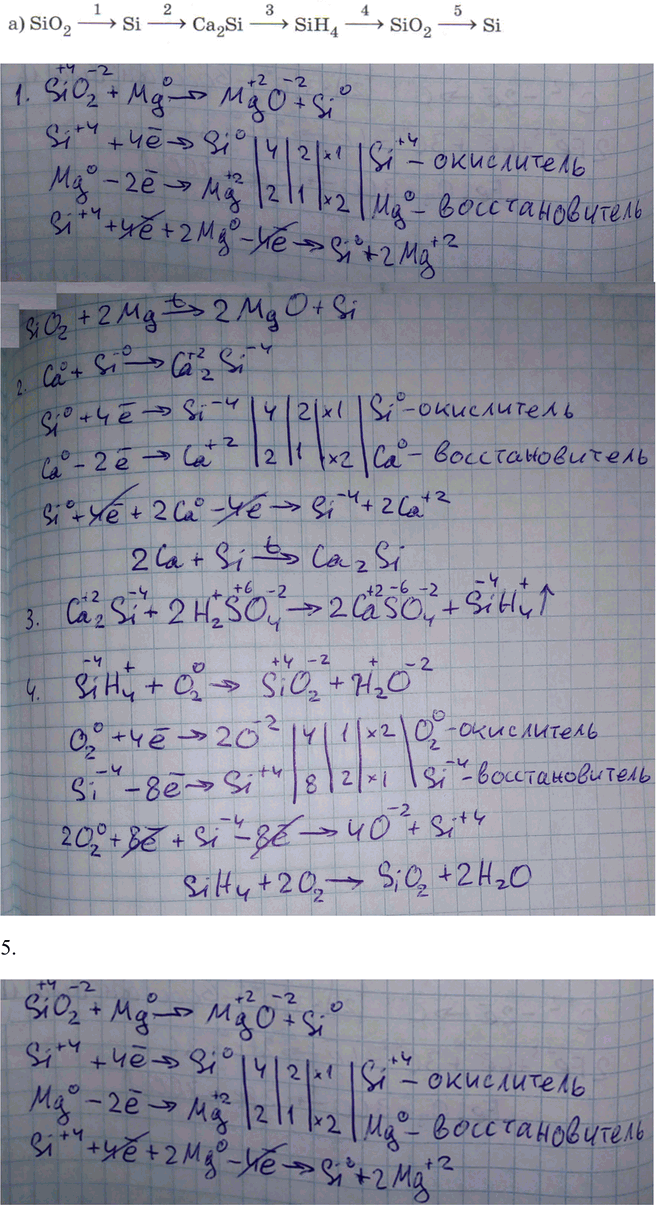 а) SiO₂ —1→ Si —2→ Ca₂Si —3→ SiH₄ —4→ SiO₂ —5→ Si
1. Si⁺⁴O₂⁻² + Mg⁰ → Mg⁺²O⁻² + Si⁰
Si⁺⁴ + 4ē → Si⁰ | 4 | 2 | ×1 | Si⁺⁴ – окислитель
Mg⁰ – 2ē → Mg⁺² | 2 | 1 | ×2 | Mg⁰ – восстановитель
Si⁺⁴ + 4ē + 2Mg⁰ – 4ē → Si⁰ + 2Mg⁺²
SiO₂ + 2Mg —t→ 2MgO + Si
2. Ca⁰ + Si⁰ → Ca₂⁺²Si⁻⁴
Si⁰ + 4ē → Si⁻⁴ | 4 | 2 | ×1 | Si⁰ – окислитель
Ca⁰ – 2ē → Ca⁺² | 2 | 1 | ×2 | Ca⁰ – восстановитель
Si⁰ + 4ē + 2Ca⁰ – 4ē → Si⁻⁴ + 2Ca⁺²
2Ca + Si —t→ Ca₂Si
3. Ca₂⁺²Si⁻⁴ + 2H₂⁺S⁺⁶O₄⁻² → 2Ca⁺²S⁻⁶O₄⁻² + Si⁻⁴H₄⁺↑
4. Si⁻⁴H₄⁺ + O₂⁰ → Si⁺⁴O₂⁻² + H₂⁺O⁻²
O₂⁰ + 4ē → 2O⁻² | 4 | 1 | ×2 | O₂⁰ – окислитель
Si⁻⁴ – 8ē → Si⁺⁴ | 8 | 2 | ×1 | Si⁻⁴ – восстановитель
2O₂⁰ + 8ē + Si⁻⁴ – 8ē → 4O⁻² + Si⁺⁴
SiH₄ + 2O₂ → SiO₂ + 2H₂O
5.
Si⁺⁴O₂⁻² + Mg⁰ → Mg⁺²O⁻² + Si⁰
Si⁺⁴ + 4ē → Si⁰ | 4 | 2 | ×1 | Si⁺⁴ – окислитель
Mg⁰ – 2ē → Mg⁺² | 2 | 1 | ×2 | Mg⁰ – восстановитель
Si⁺⁴ + 4ē + 2Mg⁰ – 4ē → Si⁰ + 2Mg⁺²